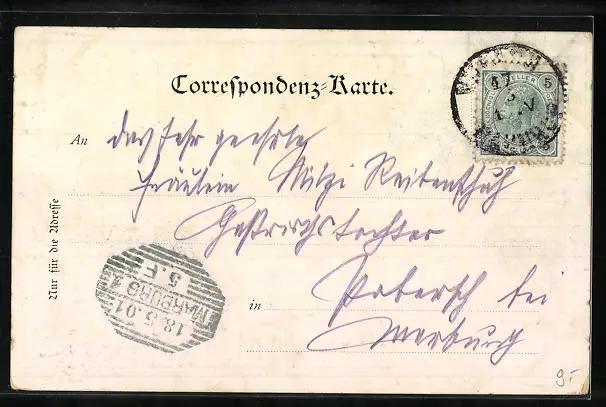 Correspondenz-Karte.
An das sehr geehrte
Fräulein Mitzi Reitenschuh
in Pobersch bei
Marburg
Nur für die Adresse
18.5.01
MARBURG
5.F
17
5
HELLER
9.-